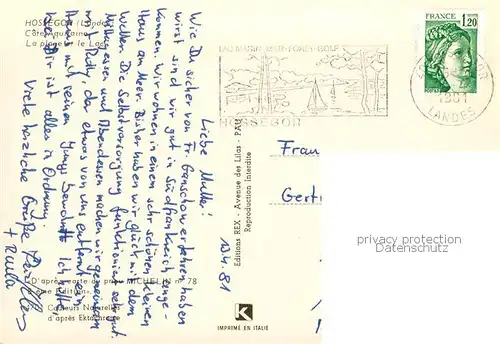 HOSSEGOR (Landes)
Côte Aquitaine
La plage et le Lac
Liebe Mutter!
Wie Du sicher von Fr. Ganschow erfahren haben
wirst, sind wir gut in Südfrankreich ange-
kommen. Wir wohnen in einem sehr schönen kleinen
Haus am Meer. Bisher haben wir Glück mit dem
Wetter. Die Selbstversorgung funktioniert sehr gut.
Mittagessen und Abendessen machen wir gemeinsam
mit da etwas von uns entfernt ein
Haus mit seinen Jungs bewohnt. Ich hoffe,
bei Dir ist alles in Ordnung.
Viele herzliche Grüße
+ Paula
12.4.81
D'après carte au pneu MICHELIN n° 78
Edition
Couleurs Naturelles
d'après Ektachrome
Editions REX - Avenue des Lilas - PAU
Reproduction interdite
K
IMPRIMÉ EN ITALIE
LAC MARIN-MER-FORET-GOLF
HOSSEGOR
FRANCE
1,20
1981
LANDES
Frau
Gertr
privacy protection
Datenschutz